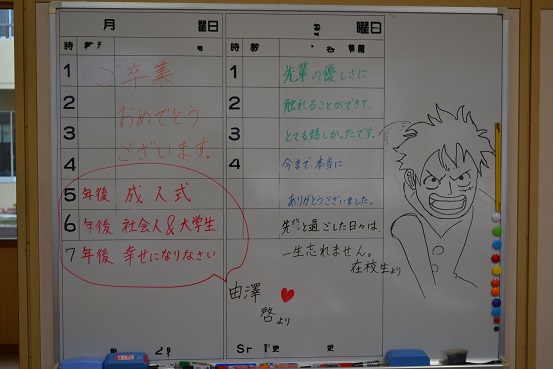 月 曜日
時
1 ご卒業
2 おめでとう
3 ございます。
4
5年後 成人式
6年後 社会人&大学生
7年後 幸せになりなさい
曜日
時 教
1 先輩の優しさに
2 触れることができて、
3 とても嬉しかったです。
4 今まで、本当に
ありがとうございました。
先輩と過ごした日々は、
一生忘れません。
在校生より
由澤
啓より